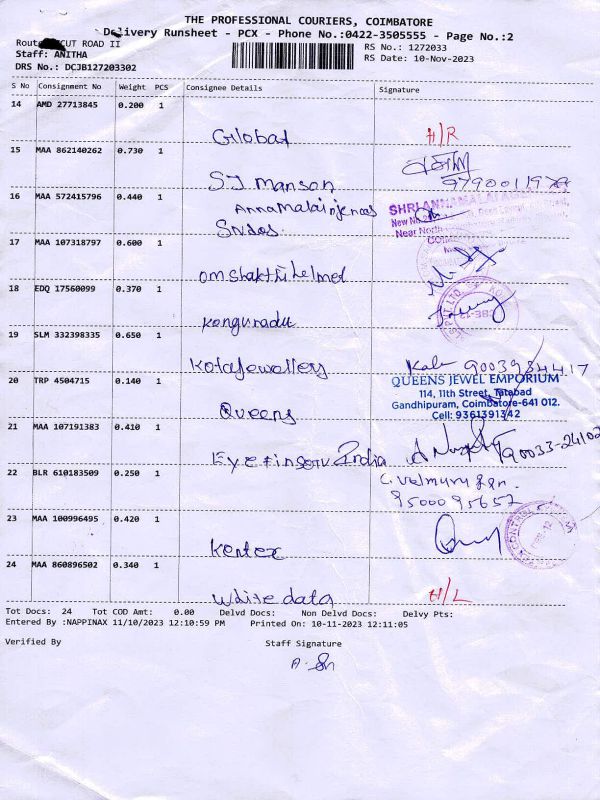 THE PROFESSIONAL COURIERS, COIMBATORE
Delivery Runsheet - PCX - Phone No.:0422-3505555 - Page No.:2
CUT ROAD II
RS No.: 1272033
Staff: ANITHA
RS Date: 10-Nov-2023
DRS No.: DCJB127203302
S No Consignment No Weight PCS Consignee Details Signature
14 AMD 27713845 0.200 1
Global H/R
15 MAA 862140262 0.730 1
S.J. manson 9790011979
16 MAA 572415796 0.440 1
Sridos.
17 MAA 107318797 0.600 1
omshakthi helmed
18 EDQ 17560099 0.370 1
konguradu
19 SLM 332398335 0.650 1
kotajewellery Kala 9003984417
20 TRP 4504715 0.140 1
QUEENS JEWEL EMPORIUM
114, 11th Street, Tatabad
Gandhipuram, Coimbatore-641 012.
Cell: 9361391342
Queens
21 MAA 107191383 0.410 1
India 90033-24102
22 BLR 610183509 0.250 1
9500095657
23 MAA 100996495 0.420 1
Kentex
24 MAA 860896502 0.340 1
white data H/L
Tot Docs: 24 Tot COD Amt: 0.00 Delvd Docs: Non Delvd Docs: Delvy Pts:
Entered By :NAPPINAX 11/10/2023 12:10:59 PM Printed On: 10-11-2023 12:11:05
Verified By Staff Signature